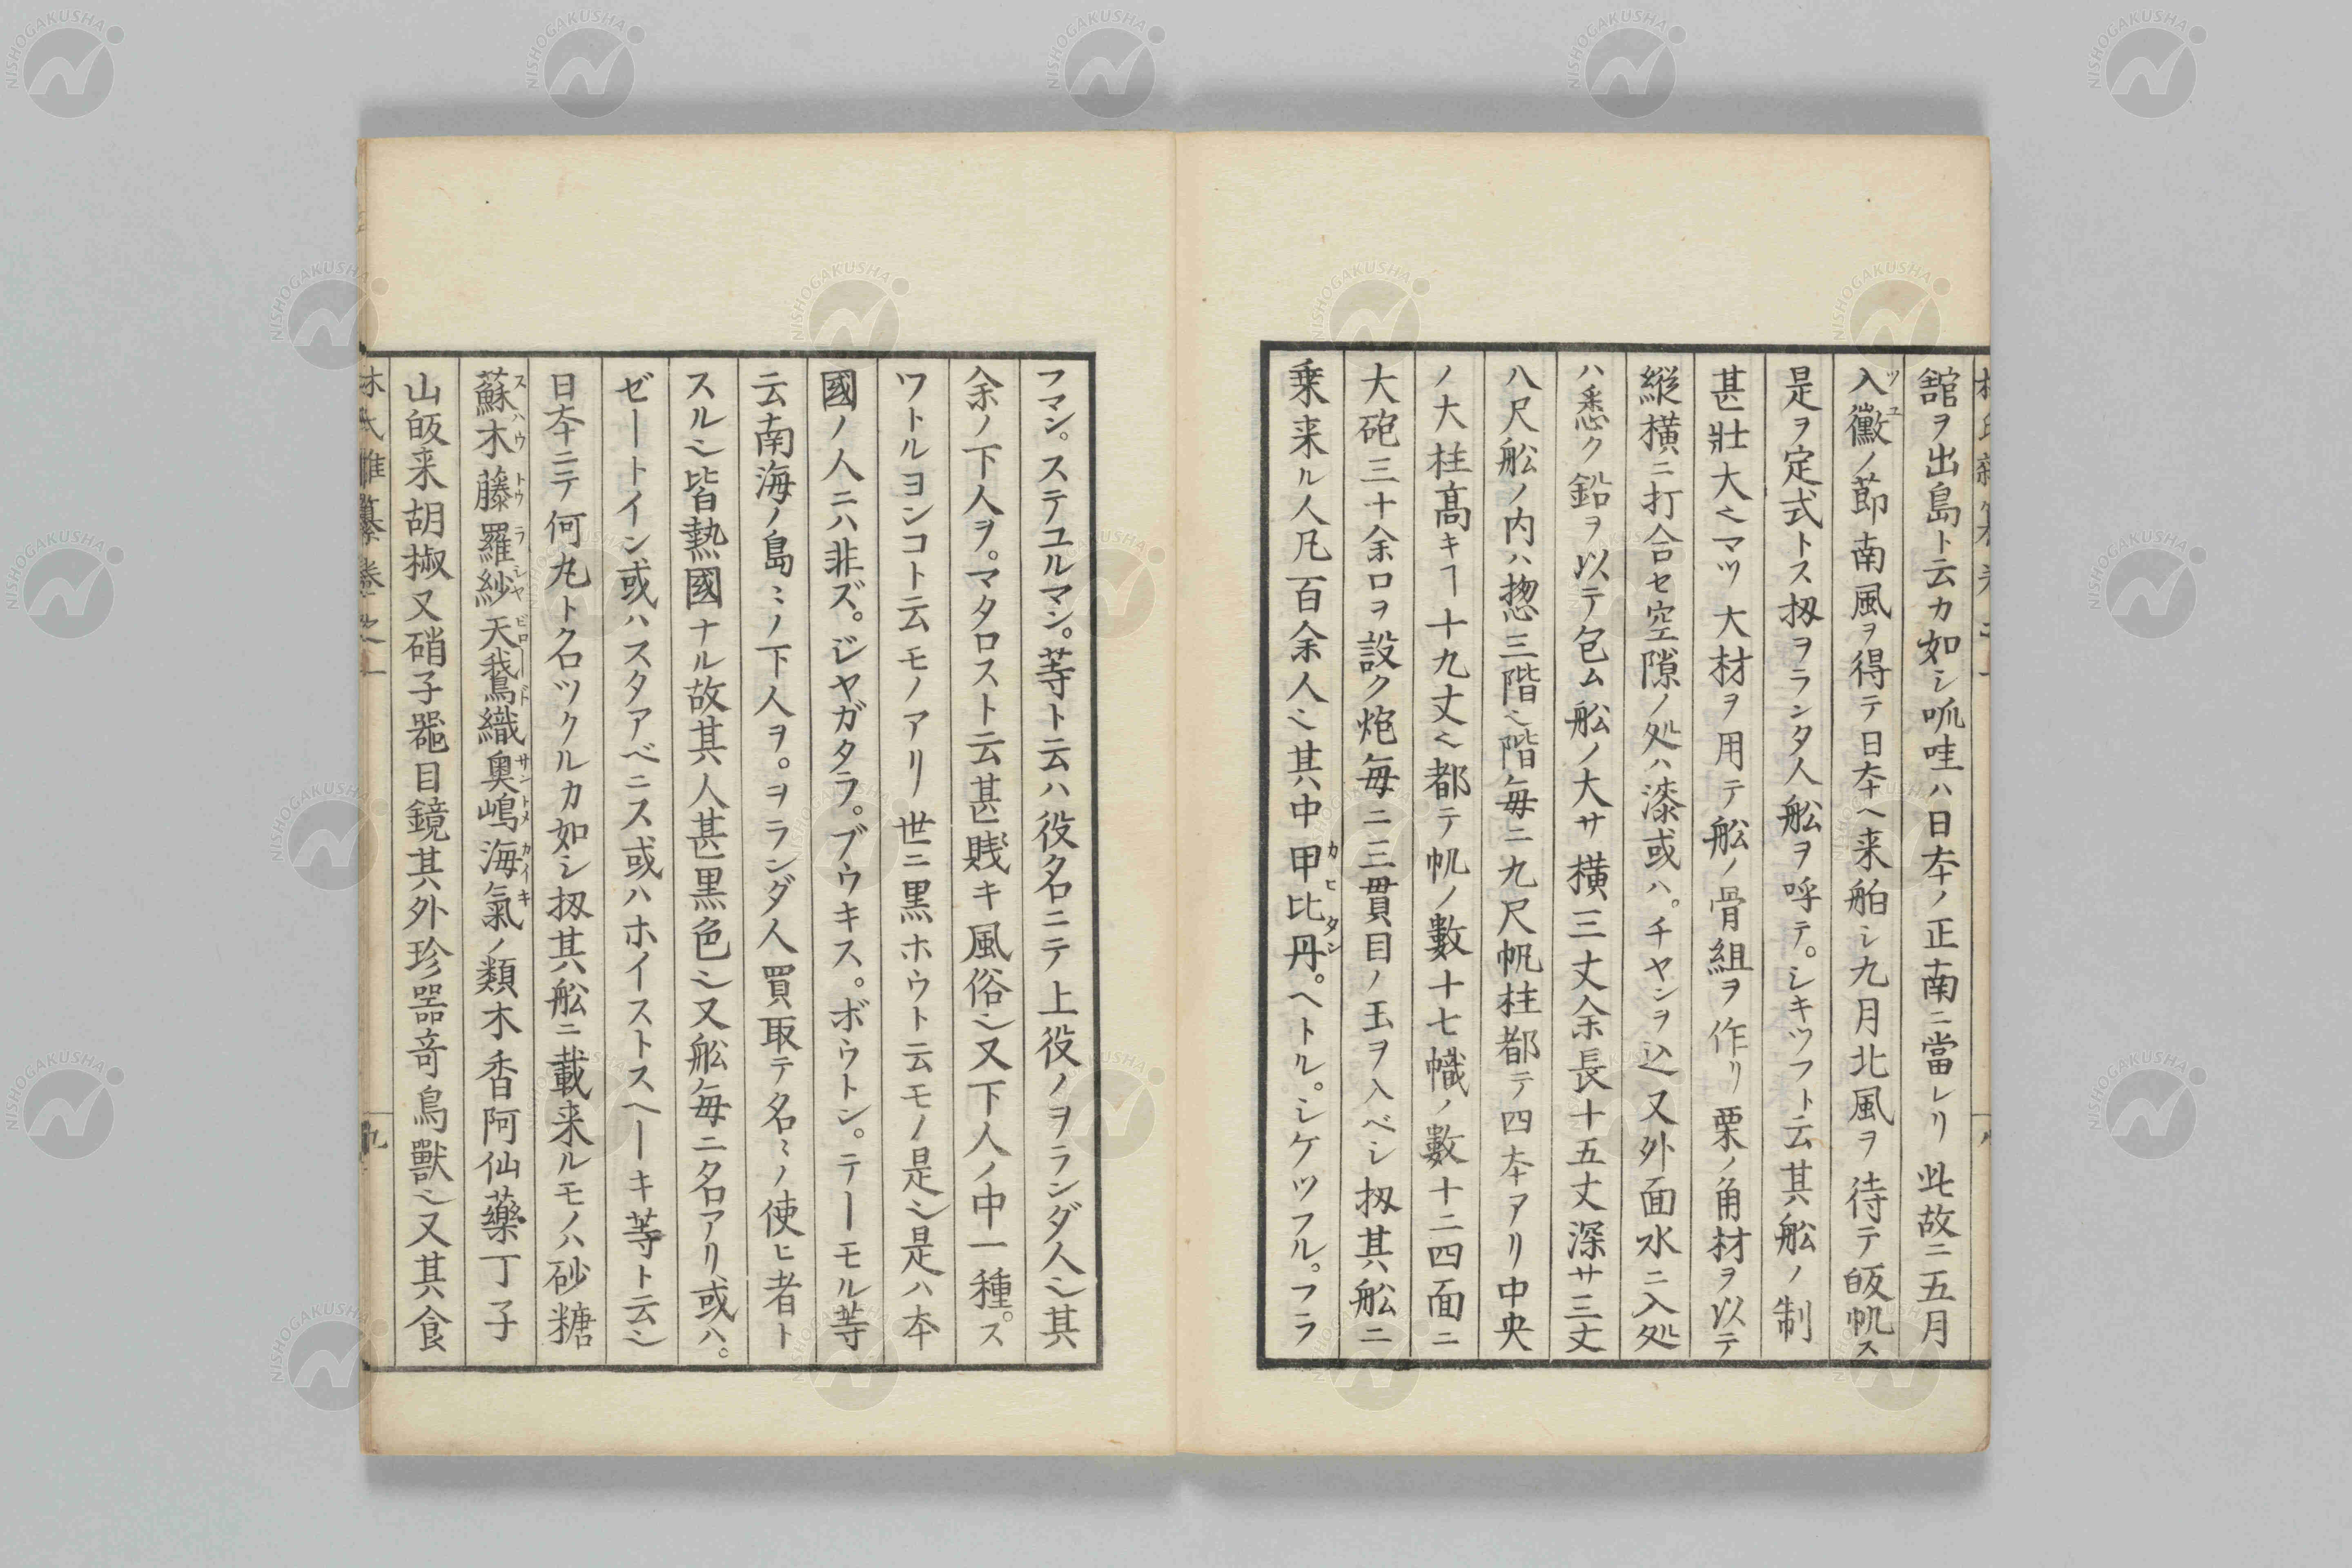 舘ヲ出島ト云カ如シ呱哇ハ日本ノ正南ニ當レリ此故ニ五月
入黴ノ節南風ヲ得テ日本ヘ来舶シ九月北風ヲ待テ皈帆ス
是ヲ定式トス扨ヲランタ人舩ヲ呼テ。シキツフト云其舩ノ制
甚壯大也マツ大材ヲ用テ舩ノ骨組ヲ作リ栗ノ角材ヲ以テ
縦横ニ打合セ空隙ノ処ハ漆或ハ。チヤンヲ込又外面水ニ入処
ハ悉ク鉛ヲ以テ包ム舩ノ大サ横三丈余長十五丈深サ三丈
八尺舩ノ内ハ惣三階也階毎ニ九尺帆柱都テ四本アリ中央
ノ大柱髙キヿ十九丈也都テ帆ノ數十七幟ノ數十二四面ニ
大砲三十余口ヲ設ク炮毎ニ三貫目ノ玉ヲ入ベシ扨其舩ニ
乗来ル人凡百余人也其中甲比丹。ヘトル。シケツフル。フラ
フマン。ステユルマン。等ト云ハ役名ニテ上役ノヲランダ人也其
余ノ下人ヲ。マタロスト云甚賎キ風俗也又下人ノ中一種。ス
ワトルヨンコト云モノアリ世ニ黒ホウト云モノ是也是ハ本
國ノ人ニハ非ズ。ジヤガタラ。ブウキス。ボウトン。テーモル等
云南海ノ島ミノ下人ヲ。ヲランダ人買取テ名ミノ使ヒ者ト
スル也皆熱國ナル故其人甚黒色也又舩毎ニ名アリ或ハ。
ゼートイン或ハスタアベニス或ハホイストスヘーキ等ト云也
日本ニテ何丸ト名ツクルカ如シ扨其舩ニ載来ルモノハ砂糖
蘇木藤羅紗天鵞織奥嶋海氣ノ類木香阿仙藥丁子
山皈来胡椒又硝子噐目鏡其外珍噐竒鳥獸也又其食